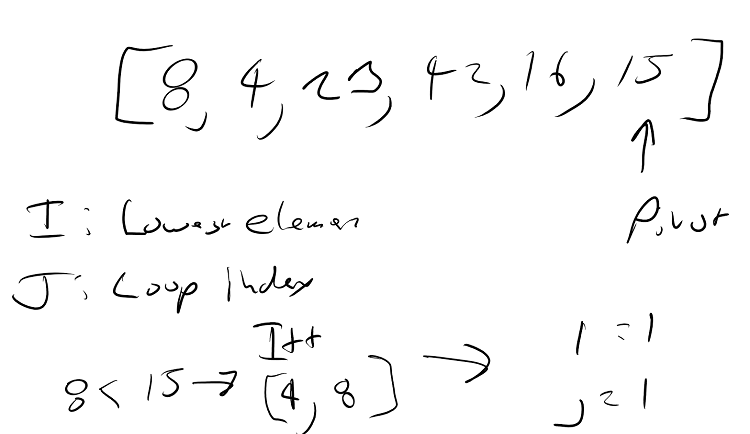 [8, 4, 23, 42, 16, 15]
Pivot
I: Lowest elemen
J: Loop Index
I++
8 < 15 → [4, 8] → I = 1
J = 1